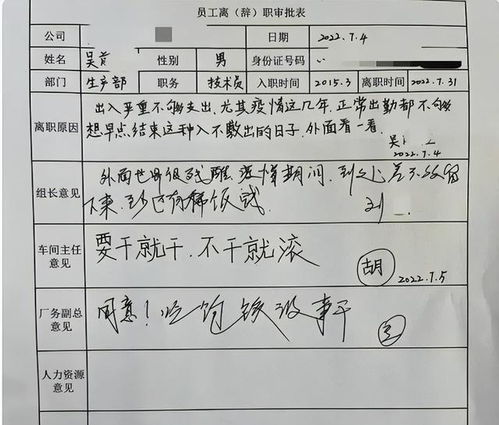 员工离（辞）职审批表
公司 日期 2022.7.4
姓名 吴 性别 男 身份证号码
部门 生产部 职务 技术员 入职时间 2015.3 离职时间 2022.7.31
离职原因
出入严重不够支出，尤其疫情这几年，正常出勤都不够
想早点结束这种入不敷出的日子，外面看一看。
吴
2022.7.4
组长意见
外面世界很残酷，疫情期间，到处差不多留
下来，至少还有稀饭喝
刘
车间主任
意见
要干就干，不干就滚
胡 2022.7.5
厂务副总
意见
同意！吃饱饭没事干
人力资源
意见